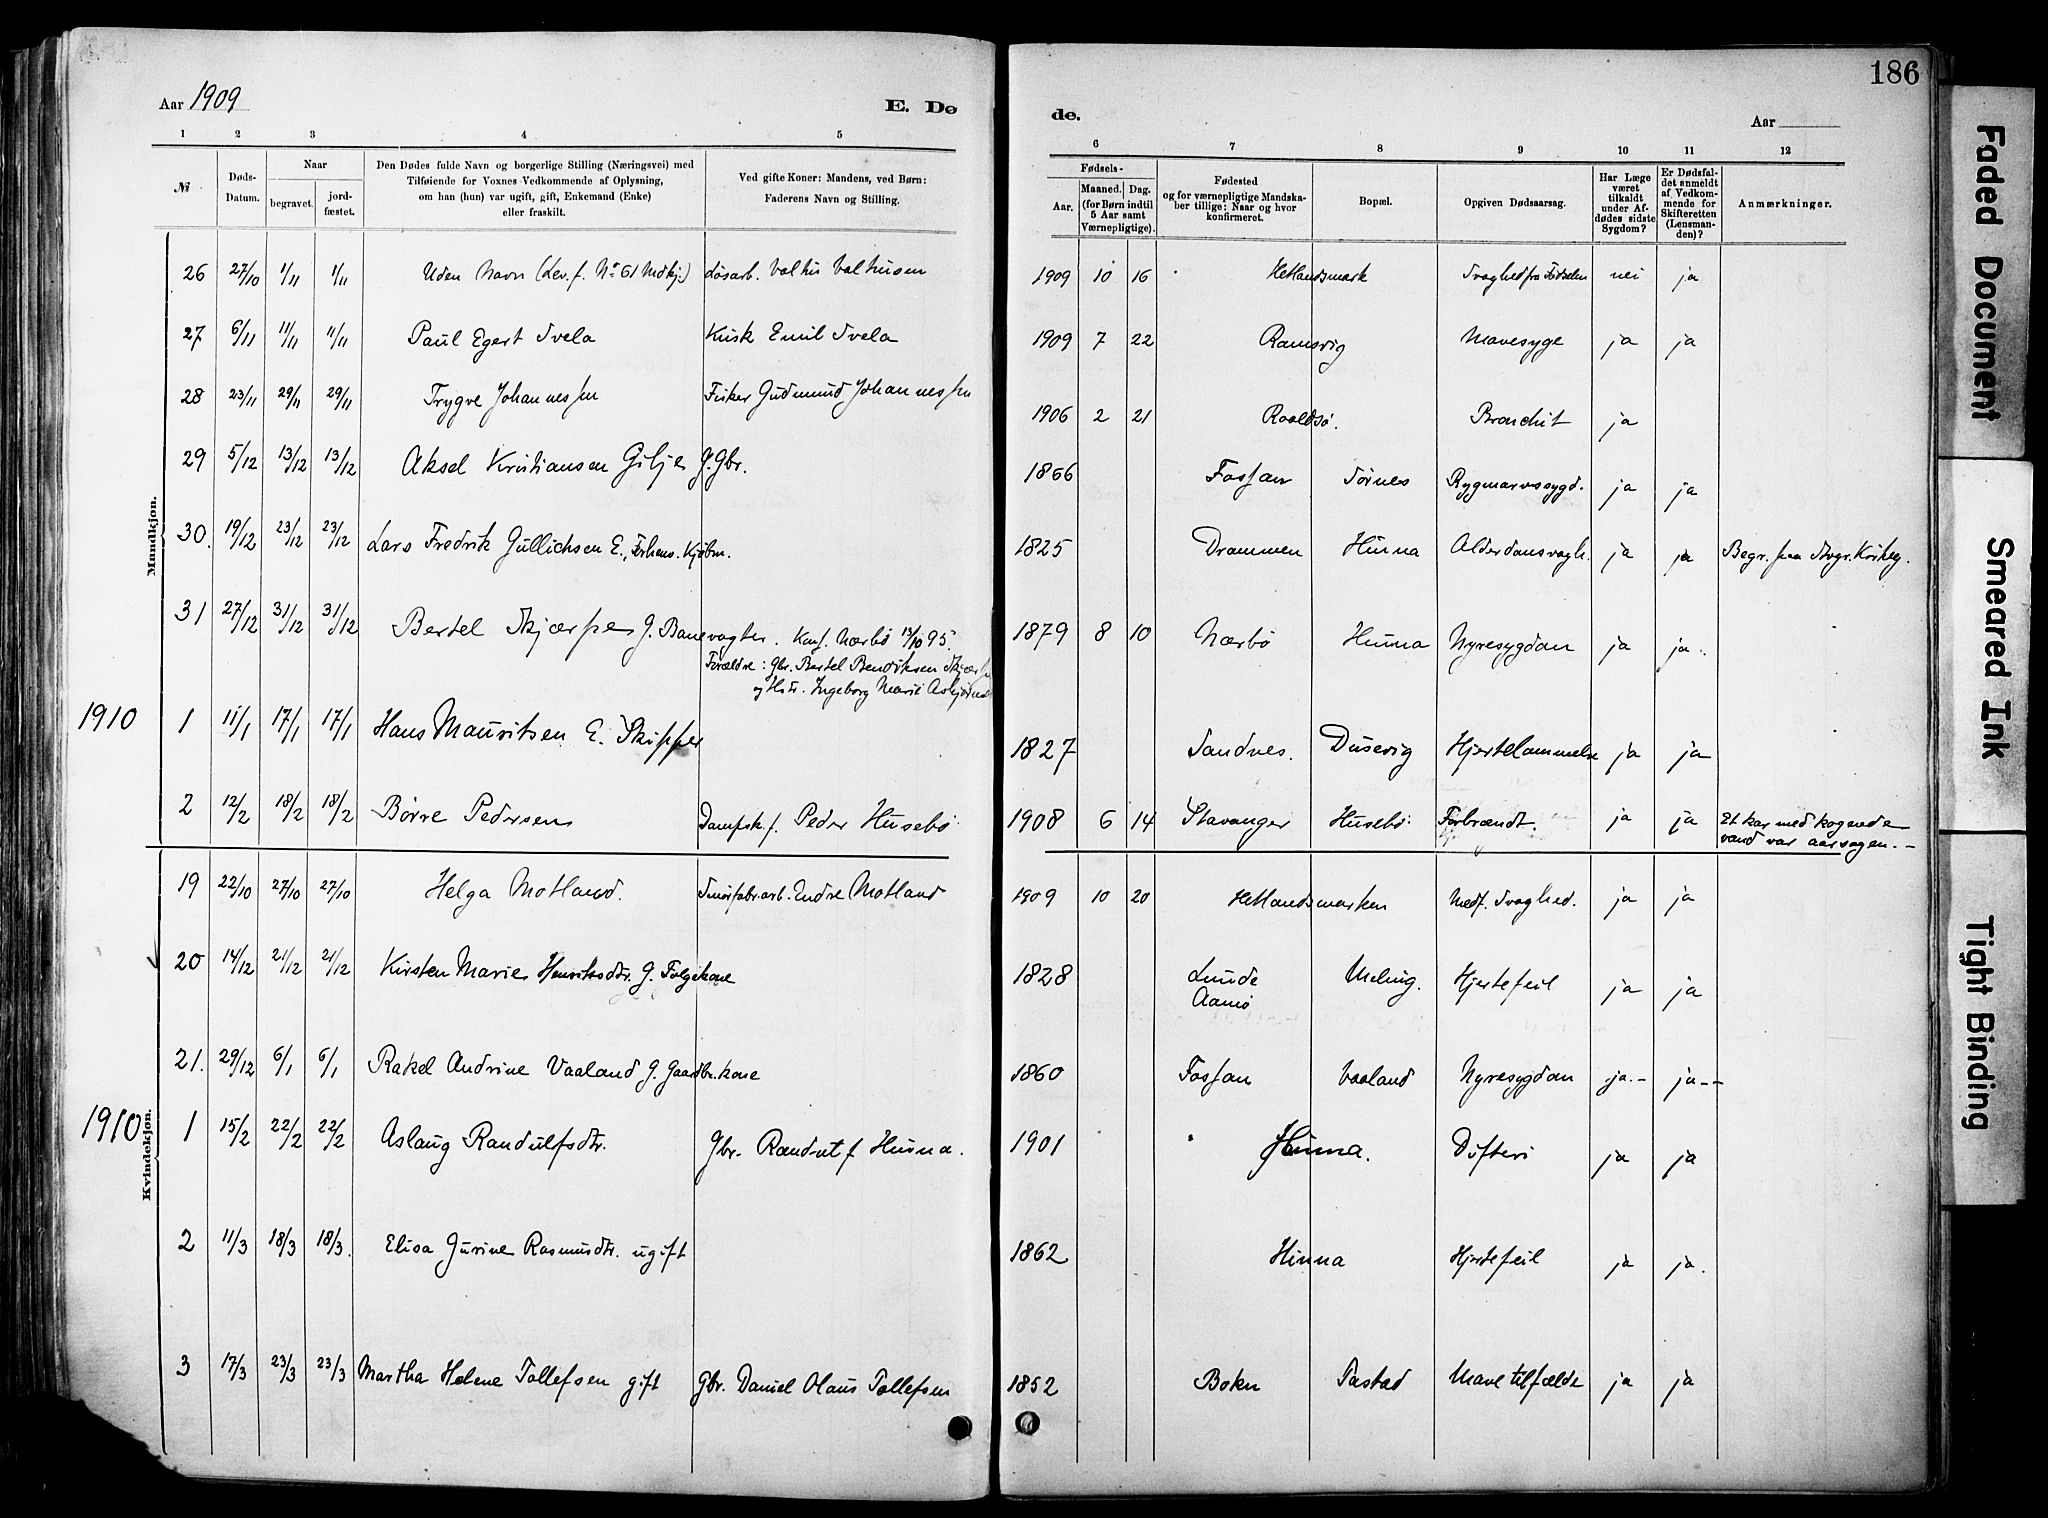 Aar 1909
E. Dø
de.
Aar
186
1 2 3 4 5 6 7 8 9 10 11 12
№
Døds-Datum.
Naar
begravet.
jord-fæstet.
Den Dødes fulde Navn og borgerlige Stilling (Næringsvei) med
Tilføiende for Voxnes Vedkommende af Oplysning,
om han (hun) var ugift, gift, Enkemand (Enke)
eller fraskilt.
Ved gifte Koner: Mandens, ved Børn:
Faderens Navn og Stilling.
Fødsels-
Aar.
Maaned. Dag.
(for Børn indtil
5 Aar samt
Værnepligtige).
Fødested
og for værnepligtige Mandska-
ber tillige: Naar og hvor
konfirmeret.
Bopæl.
Opgiven Dødsaarsag.
Har Læge
været
tilkaldt
under Af-
dødes sidste
Sygdom?
Er Dødsfal-
det anmeldt
af Vedkom-
mende for
Skifteretten
(Lensman-
den)?
Anmærkninger.
Mandkjøn.
26 27/10 1/11 1/11 Uden Navn (Lev. f. No 61 Mdkj.) Løsarb. Valhus Valhusen 1909 10 16 Hetlandsmark Svaghed fra Fødselen nei ja
27 6/11 11/11 11/11 Paul Egert Svela Kusk Emil Svela 1909 7 22 Ramsvig Mavesyge ja ja
28 23/11 29/11 29/11 Trygve Johannessen Fisker Gudmund Johannessen 1906 2 21 Roaldsø. Bronchit ja
29 5/12 13/12 13/12 Aksel Kristiansen Gilje G. Gbr. 1866 Fossan Sørnes Rygmarvssygd. ja ja
30. 19/12 23/12 23/12 Lars Fredrik Gullichsen E., Forhens. Kjøbm. 1825 Drammen Hinna Alderdomsvagh. ja ja Begr. paa Stvgr. Kirkeg.
31 27/12 31/12 31/12 Bertel Skjærpe G. Banevogter. Konf. Nærbø 13/10 95. 1879 8 10 Nærbø Hinna Nyresygdom ja ja
Forældre: Gbr. Bertel Bendiksen Skjærpe
og Hstr. Ingeborg Marie Asbjørnsd
1910 1 11/1 17/1 17/1 Hans Mauritsen E. Skipper 1827 Sandnes. Dusevig Hjertelammelse ja ja
2 12/2 18/2 18/2 Børre Pedersen Dampsk.f. Peder Husebø 1908 6 14 Stavanger Husebø Forbrændt. ja ja Et kar med kogende
vand var aarsagen. -
Kvindekjøn.
19 22/10 27/10 27/10 Helga Motland. Smørfabr.arb. Endre Motland 1909 10 20 Hetlandsmarken Medf. Svaghed. ja ja
20 14/12 21/12 21/12 Kirsten Marie Henriksdtr. G. Folgekone 1828 Lunde
Aamø Meling. Hjertefeil ja ja
21. 29/12 6/1 6/1 Rakel Andrine Vaaland G. Gaardbr.kone 1860 Fossan Vaaland Nyresygdom ja.- ja--
1910 1 15/2 22/2 22/2 Aslaug Randulfsdtr. Gbr. Randulf Hinna. 1901 Hinna. Difteri ja ja
2 11/3 18/3 18/3. Elisa Gurine Rasmusdtr. ugift 1862 Hinna Hjertefeil ja ja.
3 17/3 23/3 23/3 Martha Helene Tollefsen gift Gbr. Daniel Olaus Tollefsen 1852 Bokn Tastad Mavetilfælde ja ja
Faded Document
Smeared Ink
Tight Binding